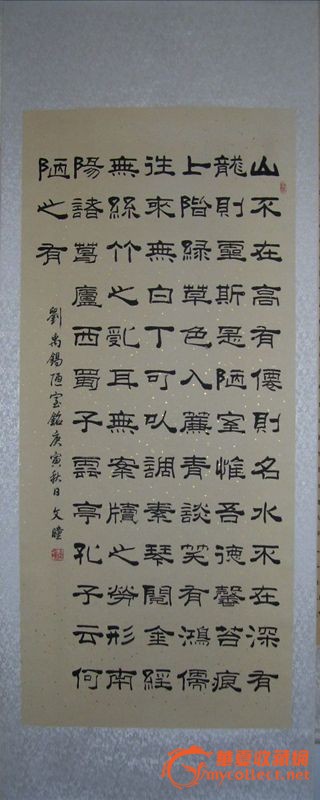 山不在高有僊則名水不在深有
龍則靈斯是陋室惟吾德馨苔痕
上階緑草色入簾青談笑有鴻儒
往來無白丁可以調素琴閱金經
無絲竹之亂耳無案牘之勞形南
陽諸葛廬西蜀子雲亭孔子云何
陋之有
劉禹錫陋室銘庚寅秋日文瞳
華夏收藏網
mycollect.net